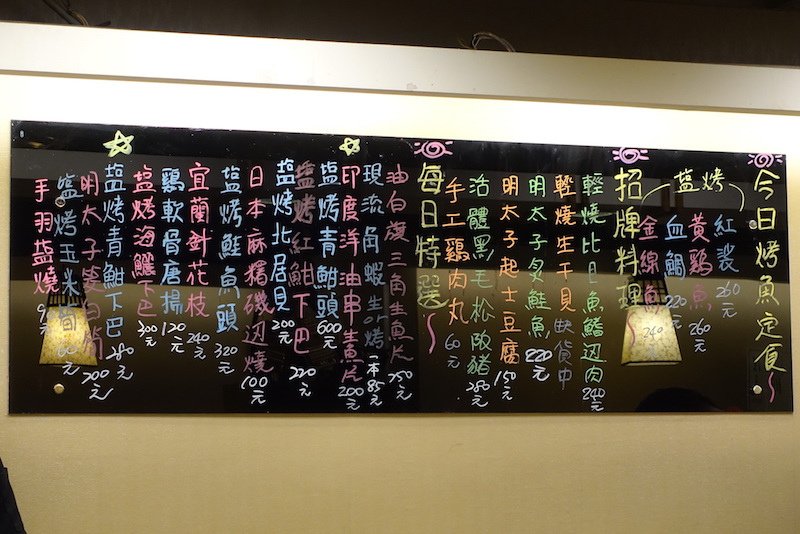 今日烤魚定食~
塩烤
紅裟 260元
黃鷄魚 260元
血鯛 220元
金線魚 240元
招牌料理~
輕燒比目魚鰭辺肉 240元
輕燒生干貝 缺貨中
明太子炙鮭魚 220元
明太子起士豆腐 150元
活體黑毛松阪豬 280元
手工鷄肉丸 60元
每日特選~
油白旗三角生魚片 250元
現流角蝦生or烤 一本85元
印度洋油串生魚片 200元
塩烤青魽頭 600元
塩烤紅魽下巴 220元
塩烤北居貝 200元
日本麻糬磯辺燒 100元
塩烤鮭魚頭 320元
宜蘭針花枝 240元
鷄軟骨唐揚 120元
塩烤海鱺下巴 300元
塩烤青魽下巴 280元
明太子筊白筍 200元
塩烤玉米筍 60元
手羽塩燒 90元